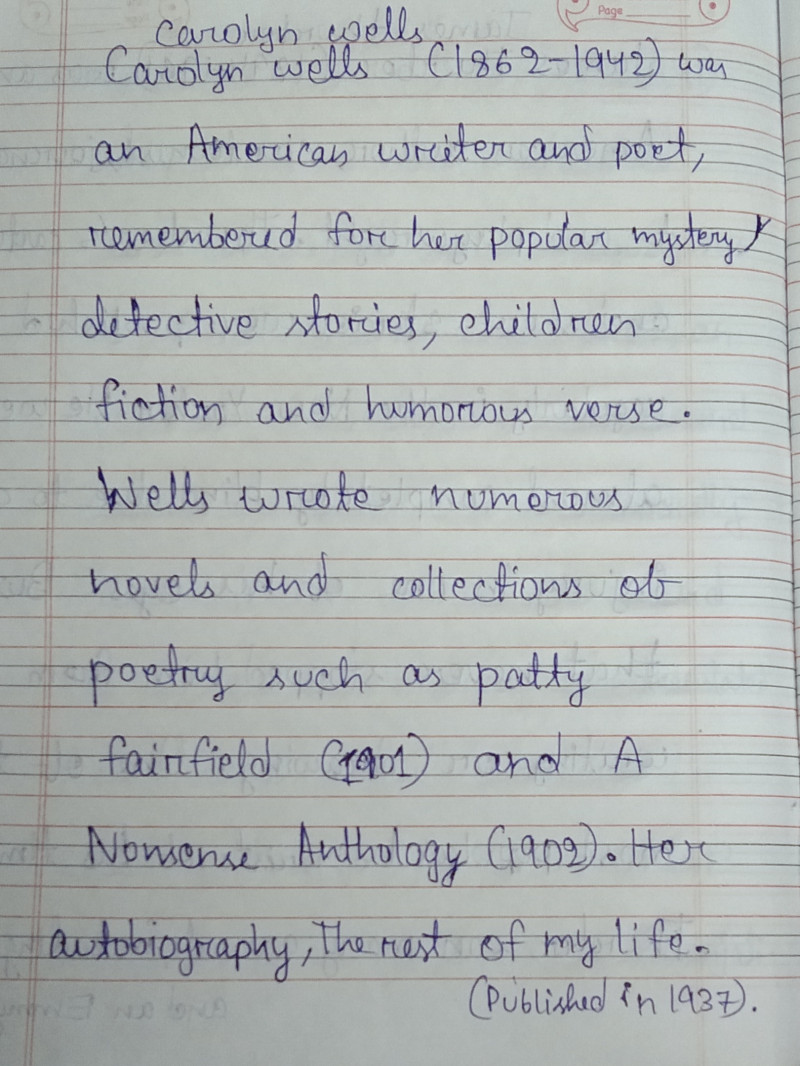 Page
Carolyn wells
Carolyn wells (1862-1942) was
an American writer and poet,
remembered for her popular mystery
detective stories, children
fiction and humorous verse.
Wells wrote numerous
novels and collections of
poetry such as patty
fairfield (1901) and A
Nonsense Anthology (1902). Her
autobiography, The rest of my life.
(Published in 1937).